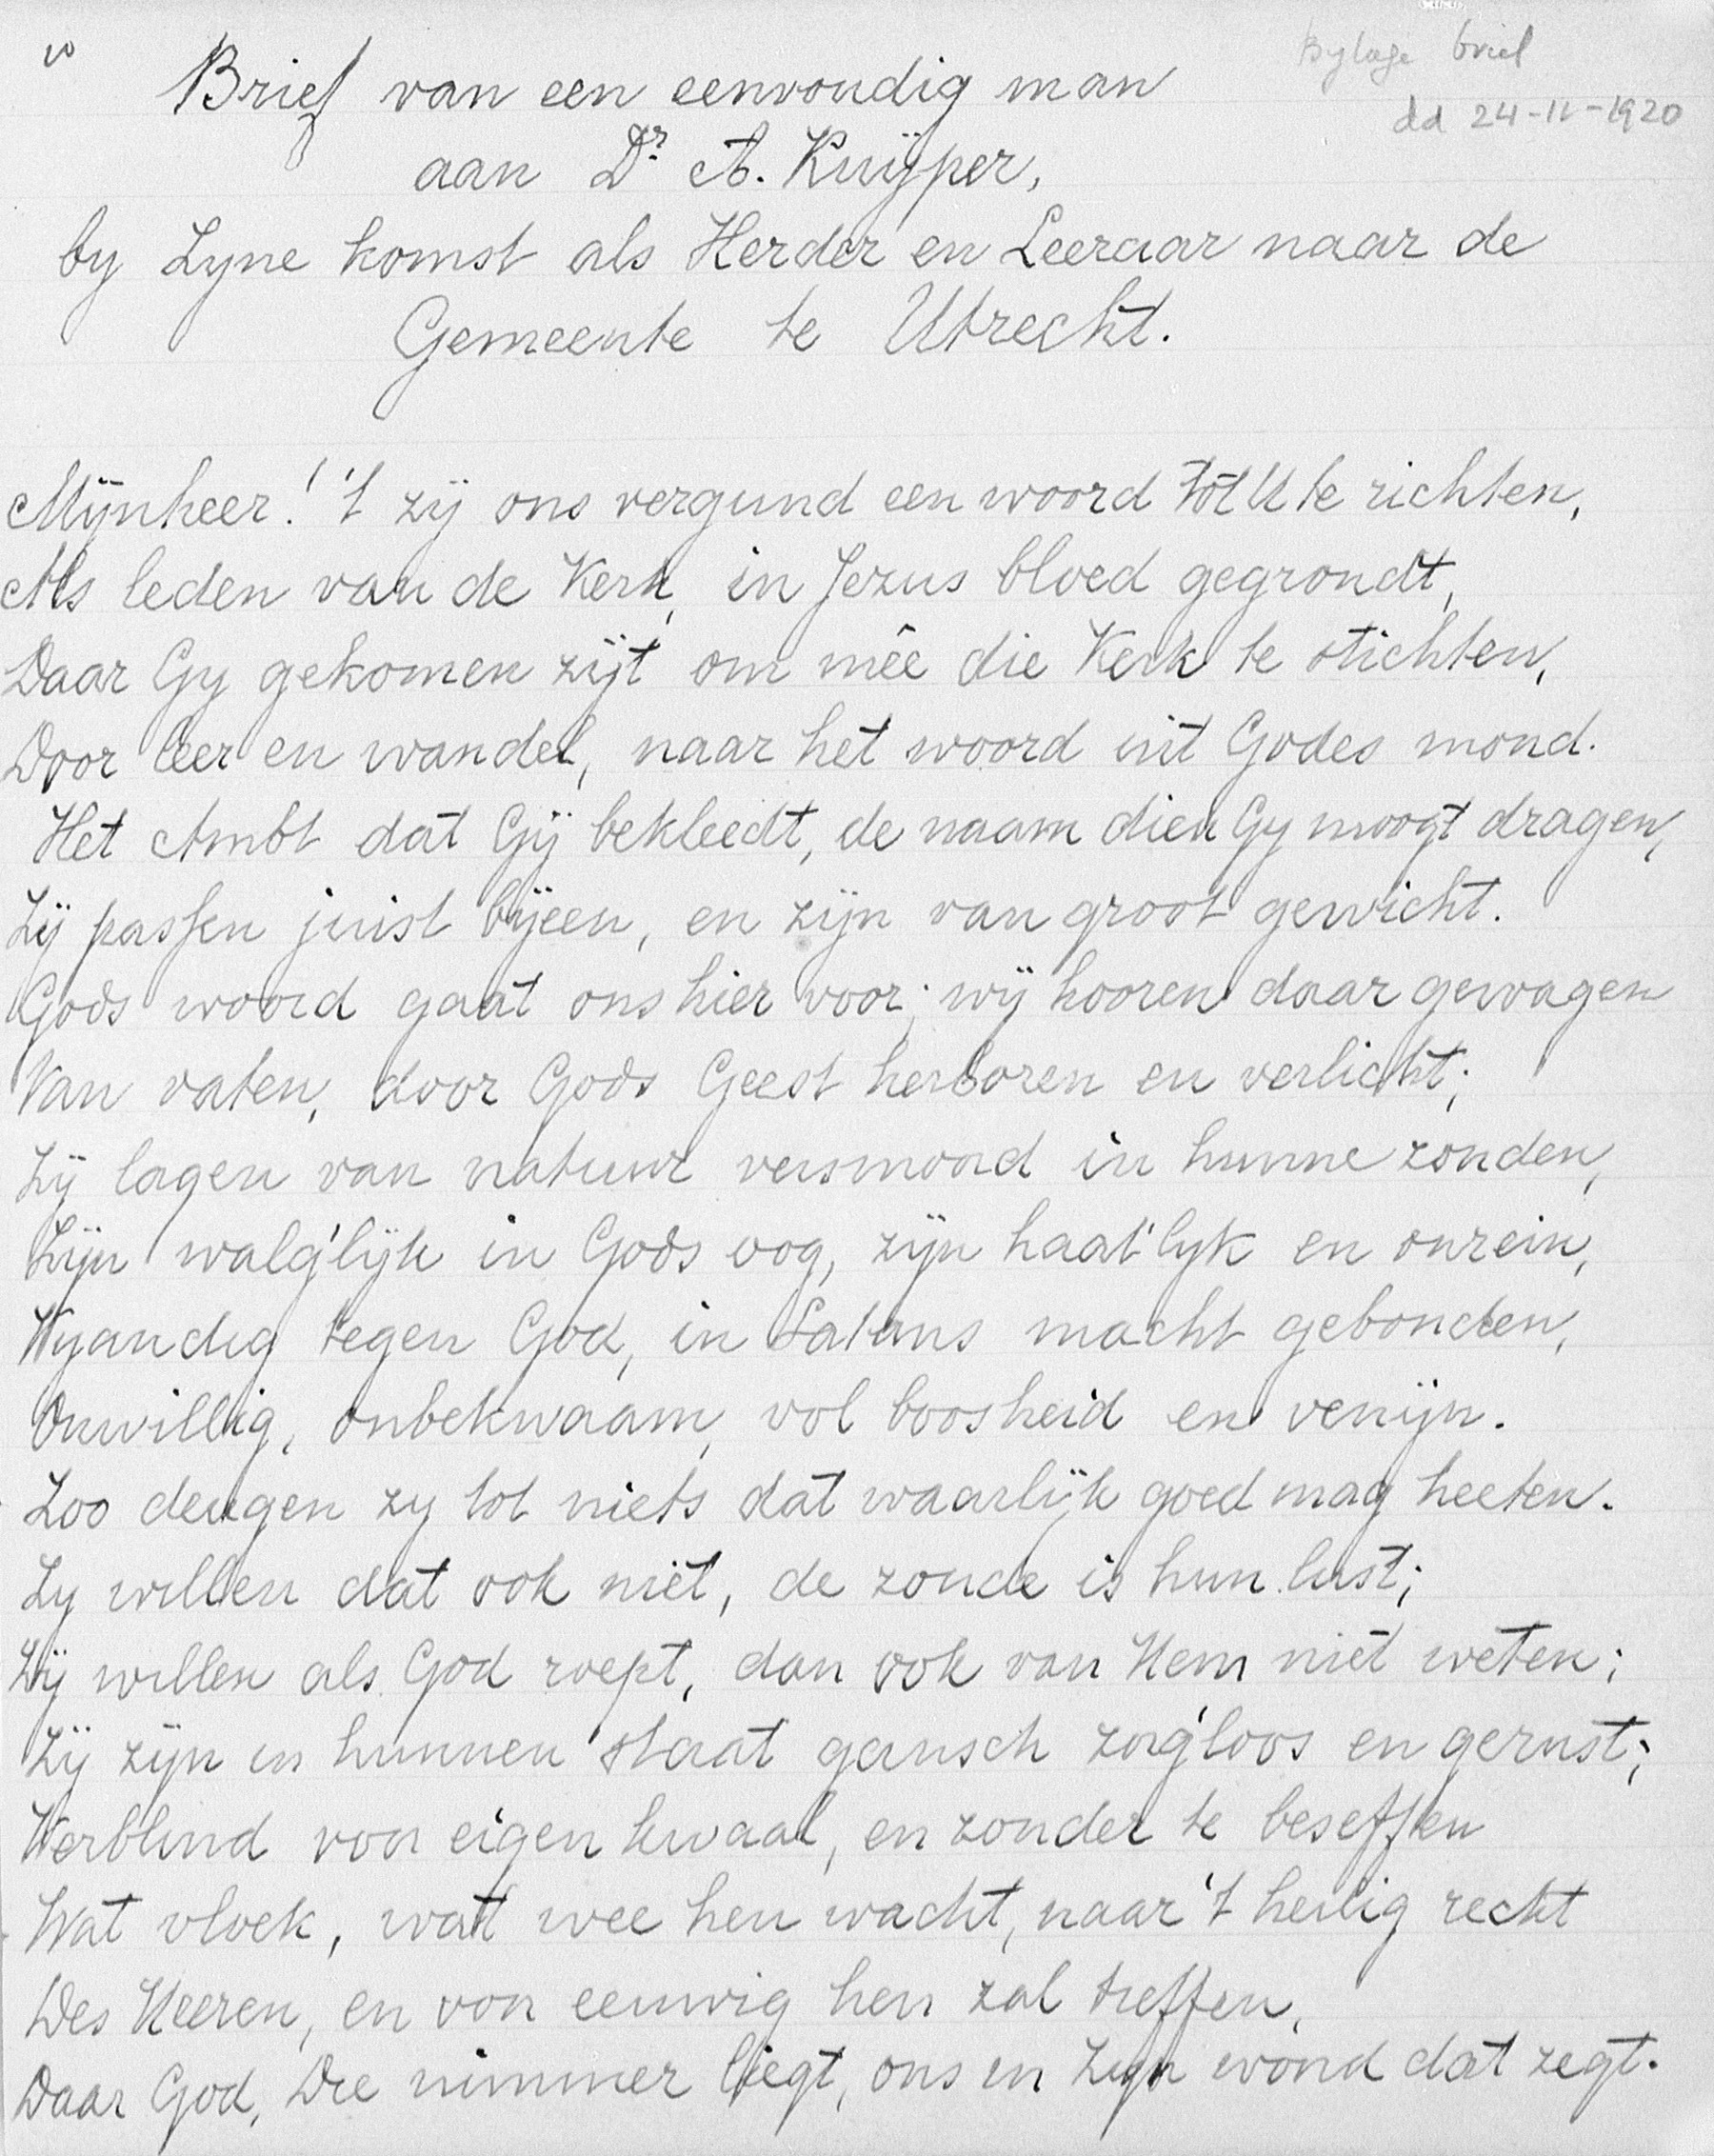 Bylage brief
dd 24-11-1920
Brief van een eenvoudig man
aan Dr. A. Kuÿper,
by Zyne komst als Herder en Leeraar naar de
Gemeente te Utrecht.
Mÿnheer! 't zÿ ons vergund een woord tot U te richten,
Als leden van de Kerk, in Jezus bloed gegrondt,
Daar Gy gekomen zÿt om meê die Kerk te stichten,
Door leer en wandel, naar het woord uit Godes mond.
Het Ambt dat Gÿ bekleedt, de naam dien Gy moogt dragen,
Zÿ passen juist bÿeen, en zÿn van groot gewicht.
Gods woord gaat ons hier voor; wÿ hooren daar gewagen
Van vaten, door Gods Geest herboren en verlicht;
Zÿ lagen van natuur versmoord in hunne zonden,
Zÿn walg'lÿk in Gods oog, zÿn haat'lyk en onrein,
Vyandig tegen God, in Satans macht gebonden,
Onwillig, onbekwaam, vol boosheid en venÿn.
Zoo deugen zy tot niets dat waarlÿk goed mag heeten.
Zy willen dat ook niet, de zonde is hun lust;
Zÿ willen als God roept, dan ook van Hem niet weten;
Zÿ zÿn in hunnen staat gansch zorg'loos en gerust;
Verblind voor eigen kwaal, en zonder te beseffen
Wat vloek, wat wee hen wacht, naar 't heilig recht
Des Heeren, en voor eeuwig hen zal treffen,
Daar God, Die nimmer liegt, ons in Zyn woord dat zegt.